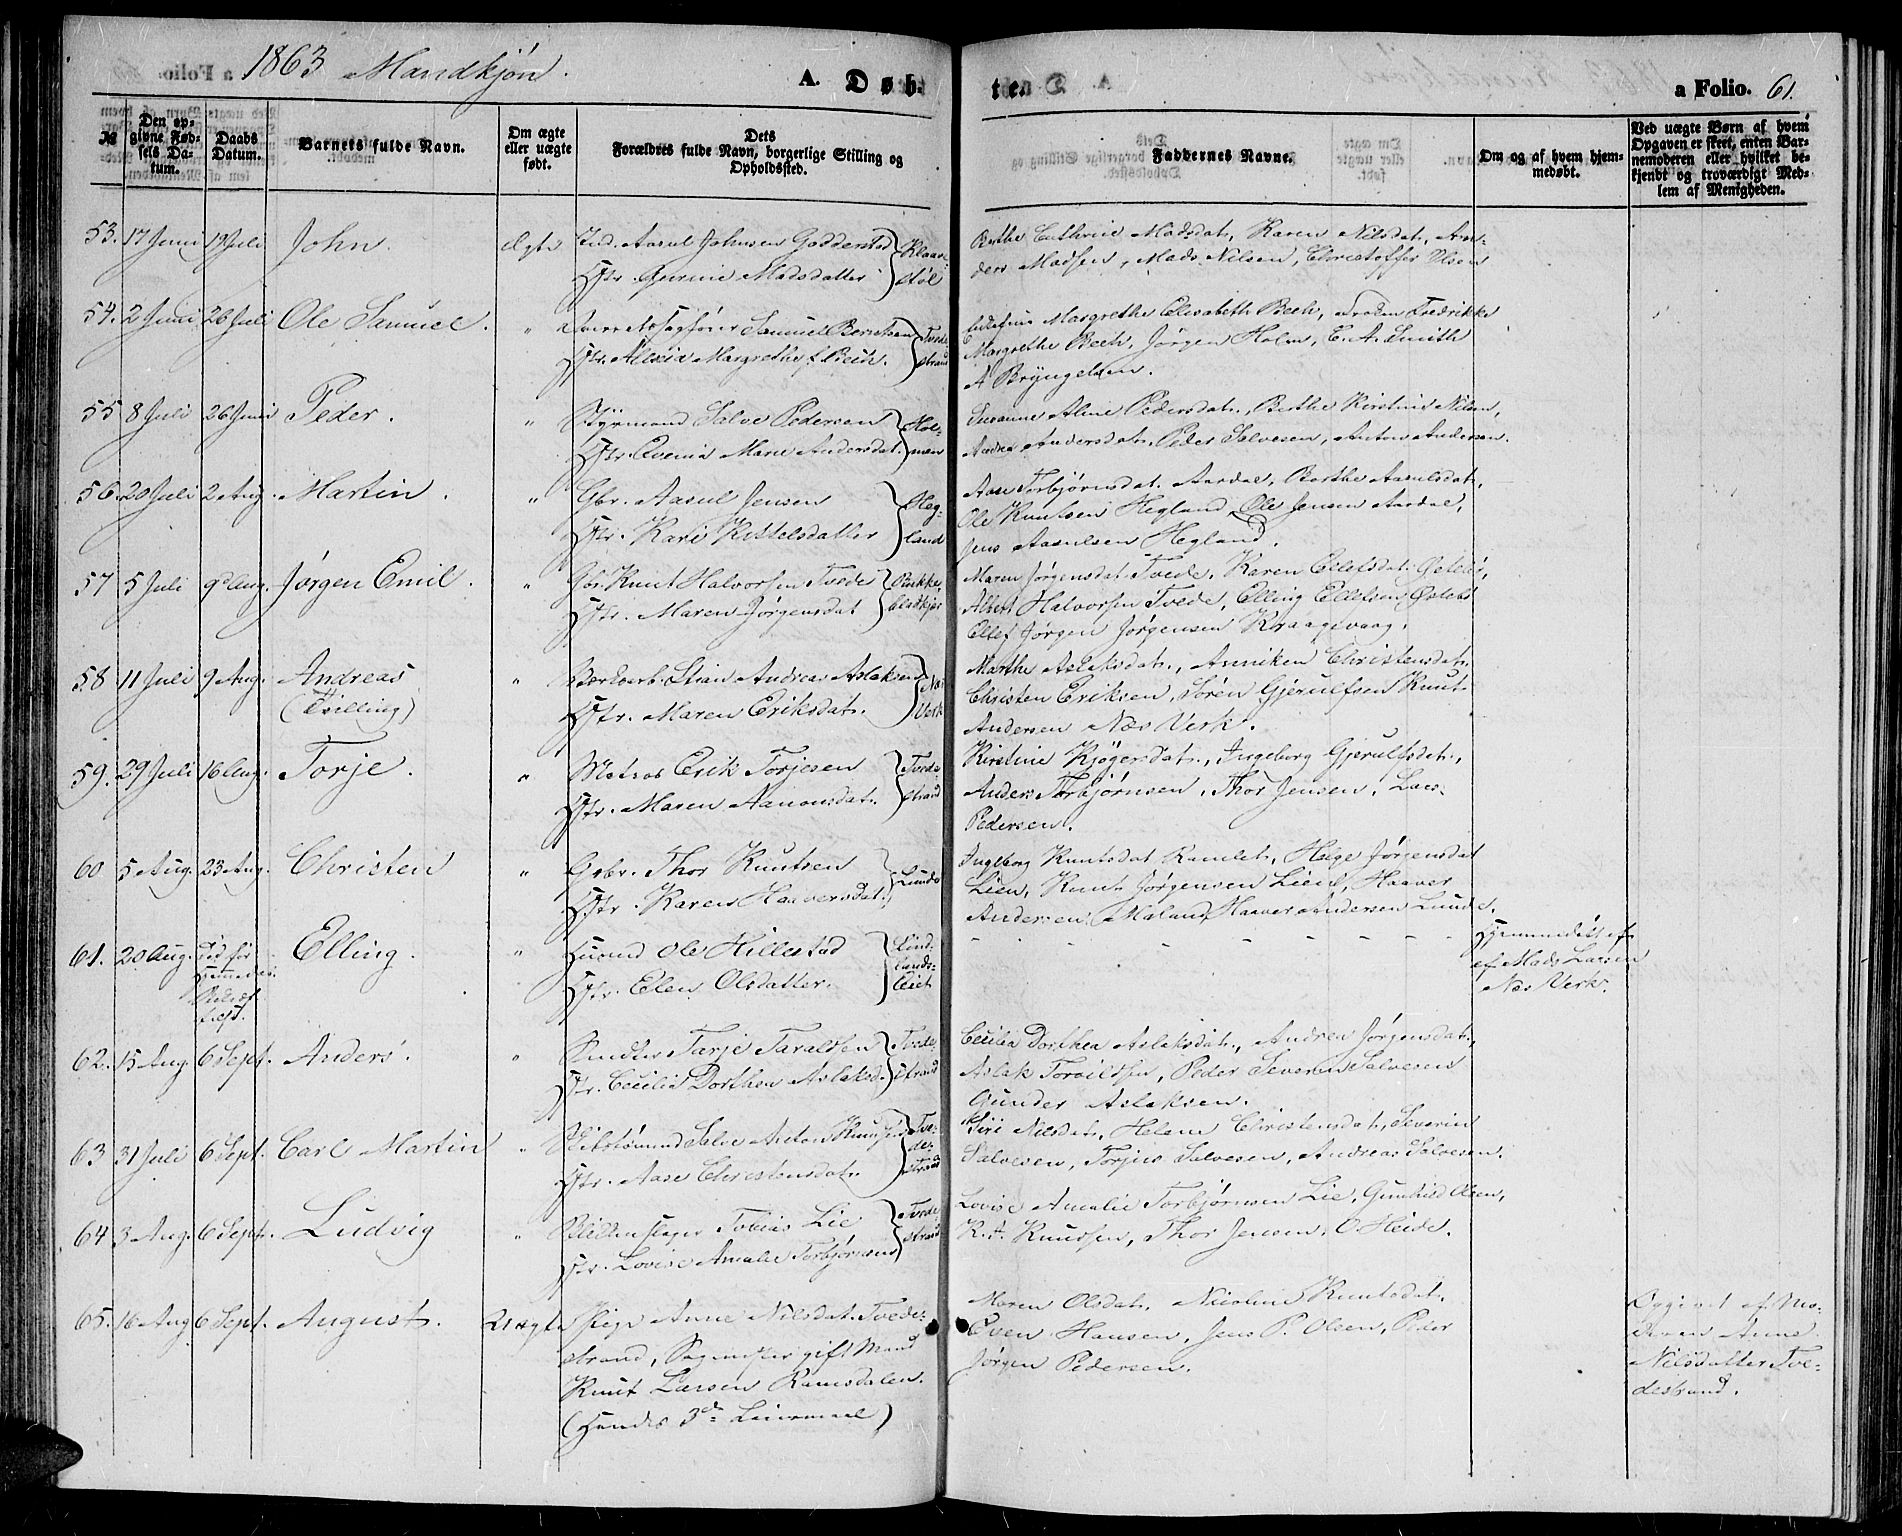 1863 Mandkjøn.
A. Døb-
te.
a Folio. 61.
№
Den op-
givne Fød-
sels Da-
tum.
Daabs
Datum.
Barnets fulde Navn.
Om ægte
eller uægte
født.
Dets
Forældres fulde Navn, borgerlige Stilling og
Opholdssted.
Faddernes Navne.
Om og af hvem hjem-
medøbt.
Ved uægte Børn af hvem
Opgaven er skeet, enten Bar-
nemoderen eller hvilket be-
kjendt og troværdigt Med-
lem af Menigheden.
53. 17 Juni 19 Juli John. Ægte Ind. Aasul Johnsen Goderstad
Hstr. Gurine Madsdatter
Berthe Cathrine Madsdat., Karen Nilsdat., An-
ders Madsen, Mads Nilsen, Christoffer Olsen
54. 2 Juni 26 Juli Ole Samuel. " Samuel Berntsen Tvede-
Hstr. Alexia Margrethe f. Bech. strand
Margrethe Elisabeth Bech, Fredrikke
Margrethe Bech, Jørgen Holm, C. A. Smith
A Bryngelsen.
55 8 Juli 26 Juni Peder. " Styrmand Salve Pedersen Hol-
Hstr. Evenia Marie Andersdat. men
Susanne Aline Pedersdat., Berthe Kirstine Nilsen,
Andrea Andersdat., Peder Salvesen, Anton Andersen.
56. 20 Juli 2 Aug. Martin. " Gbr. Aasul Jensen Heg-
Hstr. Kari Kittelsdatter land
Aase Torbjørnsdat. Aardal, Berthe Aasulsdat.,
Ole Knutsen Hegland, Ole Jensen Aardal,
Jens Aasulsen Hegland.
57 5 Juli 9de Aug. Jørgen Emil. " Gbr. Knut Halvorsen Tvede
Hstr. Maren Jørgensdat
Maren Jørgensdat. Tvede, Karen Ellefsdat. Østebø,
Albert Halvorsen Tvede, Elling Ellefsen Østebø
Ellef Jørgen Jørgensen Kraagevaag.
58 11 Juli 9 Aug. Andreas " Værksarb. Stian Andreas Aslaksen Næs
(Tvilling) Hstr. Maren Eriksdat. Verk
Marthe Aslaksdat., Anniken Christensdat.
Christen Eriksen, Søren Gjerulfsen Knut
Andersen Næs Verk.
59. 29 Juli 16 Aug. Torje. " Matros Erik Torjesen Tvede
Hstr. Maren Aanonsdat. strand
Kirstine Kjøgersdat., Ingeborg Gjerulfsdat.,
Anders Torbjørnsen, Thor Jensen, Lars
Pedersen.
60 5 Aug. 23 Aug. Christen " Gbr. Thor Knutsen Lunde
Hstr. Karen Haaversdat.
Ingeborg Knutsdat Ramlet, Helge Jørgensdat
Lien, Knut Jørgensen Lien, Haaver
Andersen Maland, Haaver Andersen Lunde.
61. 20 Aug. Elling. " Husmd Ole Hillestad Lind-
Hstr. Elen Olsdatter. lands-
eiet
Hjemmedøbt af
af Mads Larsen
Næs Verk.
62. 15 Aug. 6 Sept. Anders. " Tarje Taraldsen Tvede
Hstr. Cecilie Dorthea Aslaksd. strand
Cecilia Dorthea Aslaksdat., Andrea Jørgensdat.,
Aslak Torvildsen, Peder Severin Salvesen
Gunder Aslaksen.
63 31 Juli 6 Sept. Carl Martin " Salve Anton Knudsen Tve-
Hstr. Aase Christensdat. de-
strand
Siri Nilsdat., Helene Christensdat., Severin
Salvesen, Torjus Salvesen, Andreas Salvesen.
64 3 Aug. 6 Sept. Ludvig " Blikkenslager Tobias Lie Tvede
Hstr. Lovise Amalie Torbjørnsen strand
Lovise Amalie Torbjørnsen Lie, Gunhild Olsen,
K. A. Knudsen, Thor Jensen, O. Heide.
65. 16 Aug 6 Sept. August. Uægte Pige Anne Nilsdat. Tvede-
strand, gift Mand
Knut Larsen Ramsdalen.
(Hendes 3de Leiermaal)
Maren Olsdat., Nicoline Knutsdat.,
Even Hansen, Jens P. Olsen, Peder
Jørgen Pedersen.
Opgivet af Mo-
deren Anne
Nilsdatter Tve-
destrand.